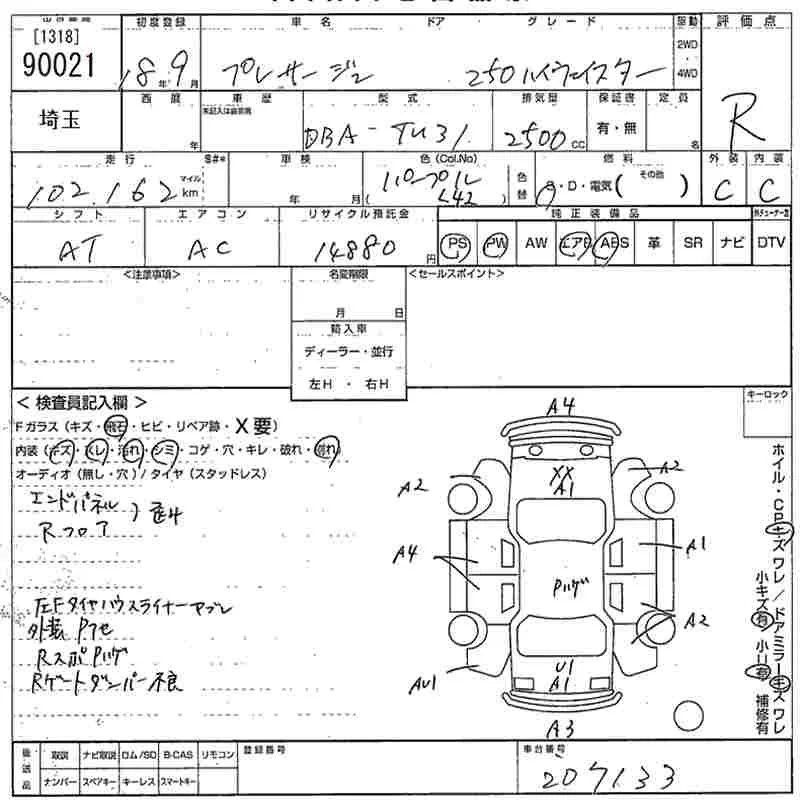 初度登録 車名 ドア グレード 駆動 評価点
[1318]
90021
18年9月 プレサージュ 250ハイウェイスター 2WD 4WD R
埼玉
西暦 車歴 型式 排気量 保証書 定員
未記入は自家用
年 DBA-TU31 2500cc 有・無 名
走行 S#* 車検 色(Col.No) 燃料 外装 内装
102,162 マイル km 年 月 パープル (L42) 色替 G・D・電気( その他 ) C C
シフト エアコン リサイクル預託金 純正装備品
AT AC 14880円 PS PW AW エアB ABS 革 SR ナビ DTV
<注意事項> 名変期限 <セールスポイント>
月 日
輸入車
ディーラー・並行
左H ・ 右H
<検査員記入欄> キーロック
Fガラス(キズ・飛石・ヒビ・リペア跡・X要)
内装(キズ・スレ・汚れ・シミ・コゲ・穴・キレ・破れ・剝れ)
オーディオ(無し・穴)/タイヤ(スタッドレス)
エンドパネル
Rフロア
左Fタイヤハウスライナーヤブレ
外装Pアセ
RスポPハゲ
Rゲートダンパー不良
A4
XX
A1
A2
A2
A4
A1
Pハゲ
A2
AU1
U1
A1
A3
ホイル・CPキズ ワレ/ドアミラーキズ ワレ
小キズ有 小U有 補修有
後送品 取説 ナビ取説 ロム/SD B-CAS リモコン 登録番号 車台番号
ナンバー スペアキー キーレス スマートキー 207133